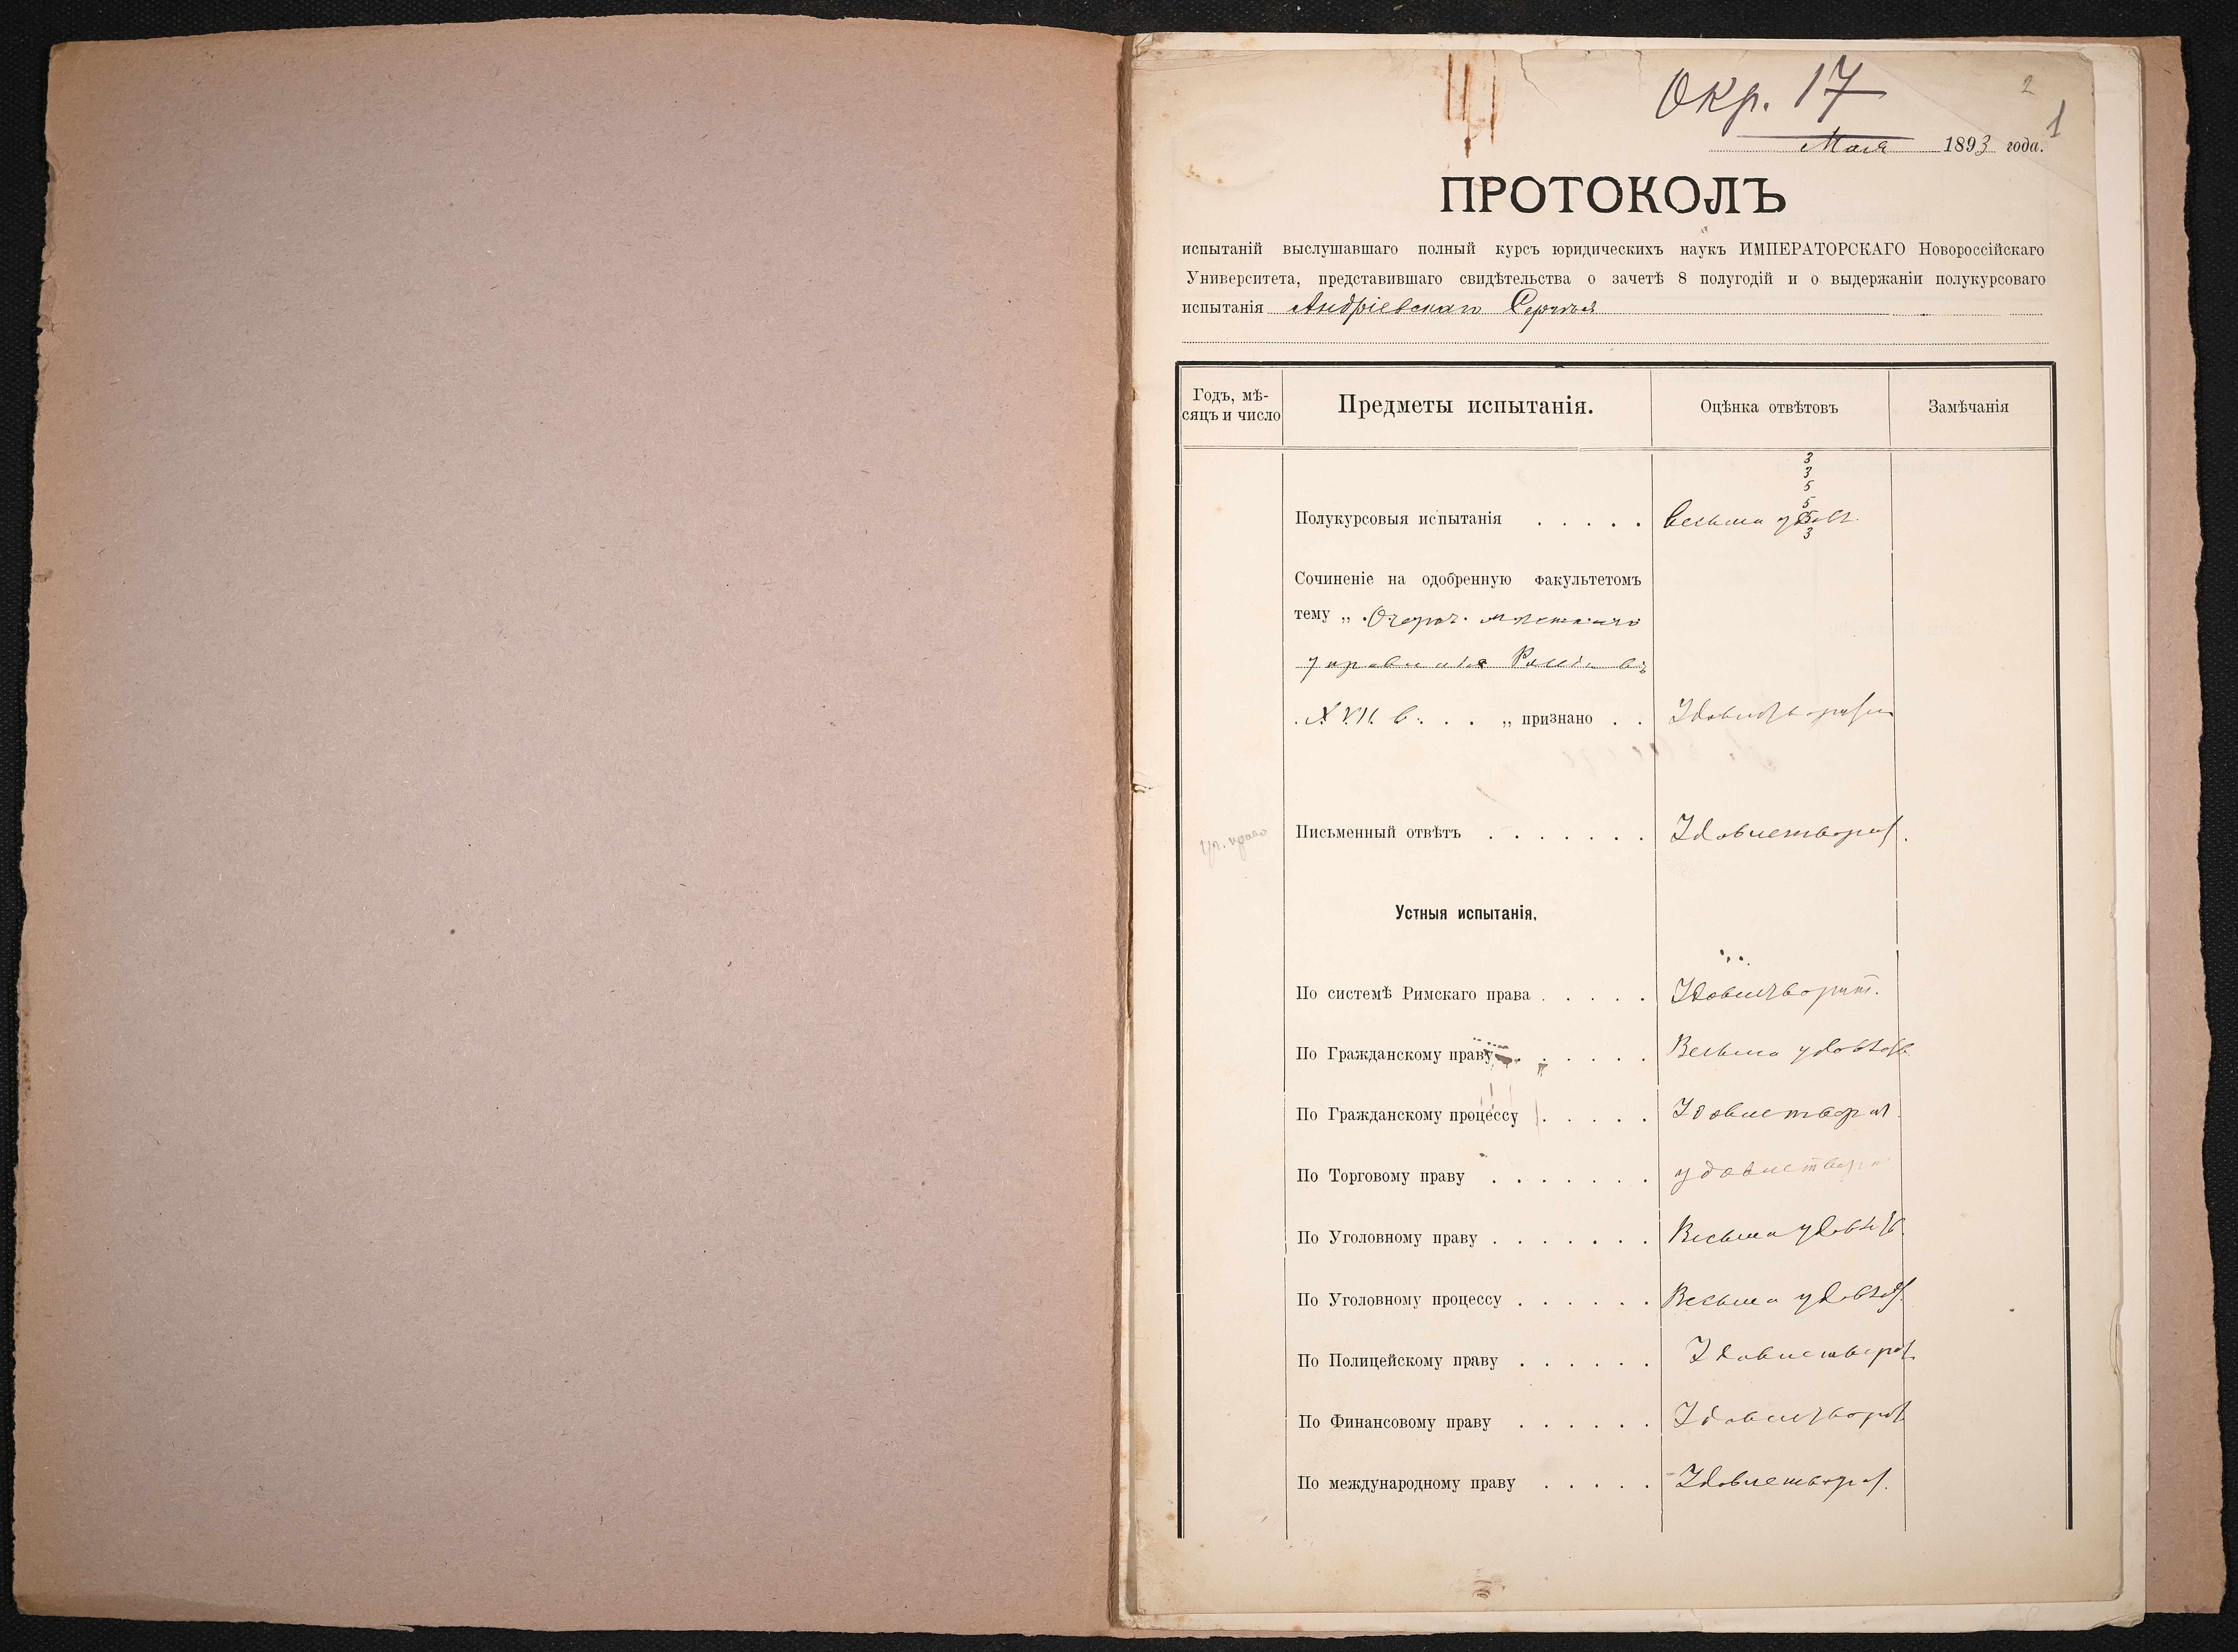 Окр. 17
2
1
Мая 1893 года.
ПРОТОКОЛЪ
испытаній выслушавшаго полный курсъ юридическихъ наукъ ИМПЕРАТОРСКАГО Новороссійскаго
Университета, представившаго свидѣтельства о зачетѣ 8 полугодій и о выдержаніи полукурсоваго
испытанія Андріевскаго Сергѣя
Годъ, мѣ-
сяцъ и число
Предметы испытанія.
Оцѣнка отвѣтовъ
Замѣчанія
3
3
5
5
5
3
Полукурсовыя испытанія . . . . . весьма удовл.
Сочиненіе на одобренную факультетомъ
тему „ Очеркъ мѣстнаго
управленія Россіи въ
XVII в. . . „ признано . . Удовлетворит
уг. право
Письменный отвѣтъ . . . . . . . Удовлетворит.
Устныя испытанія.
По системѣ Римскаго права . . . . . Удовлетворит.
По Гражданскому праву . . . . . Весьма удовлетв.
По Гражданскому процессу . . . . . Удовлетворит
По Торговому праву . . . . . . . удовлетворит
По Уголовному праву . . . . . . . Весьма удовлетв.
По Уголовному процессу . . . . . . Весьма удовлетв.
По Полицейскому праву . . . . . . Удовлетворит.
По Финансовому праву . . . . . . Удовлетворит
По международному праву . . . . . Удовлетворит.